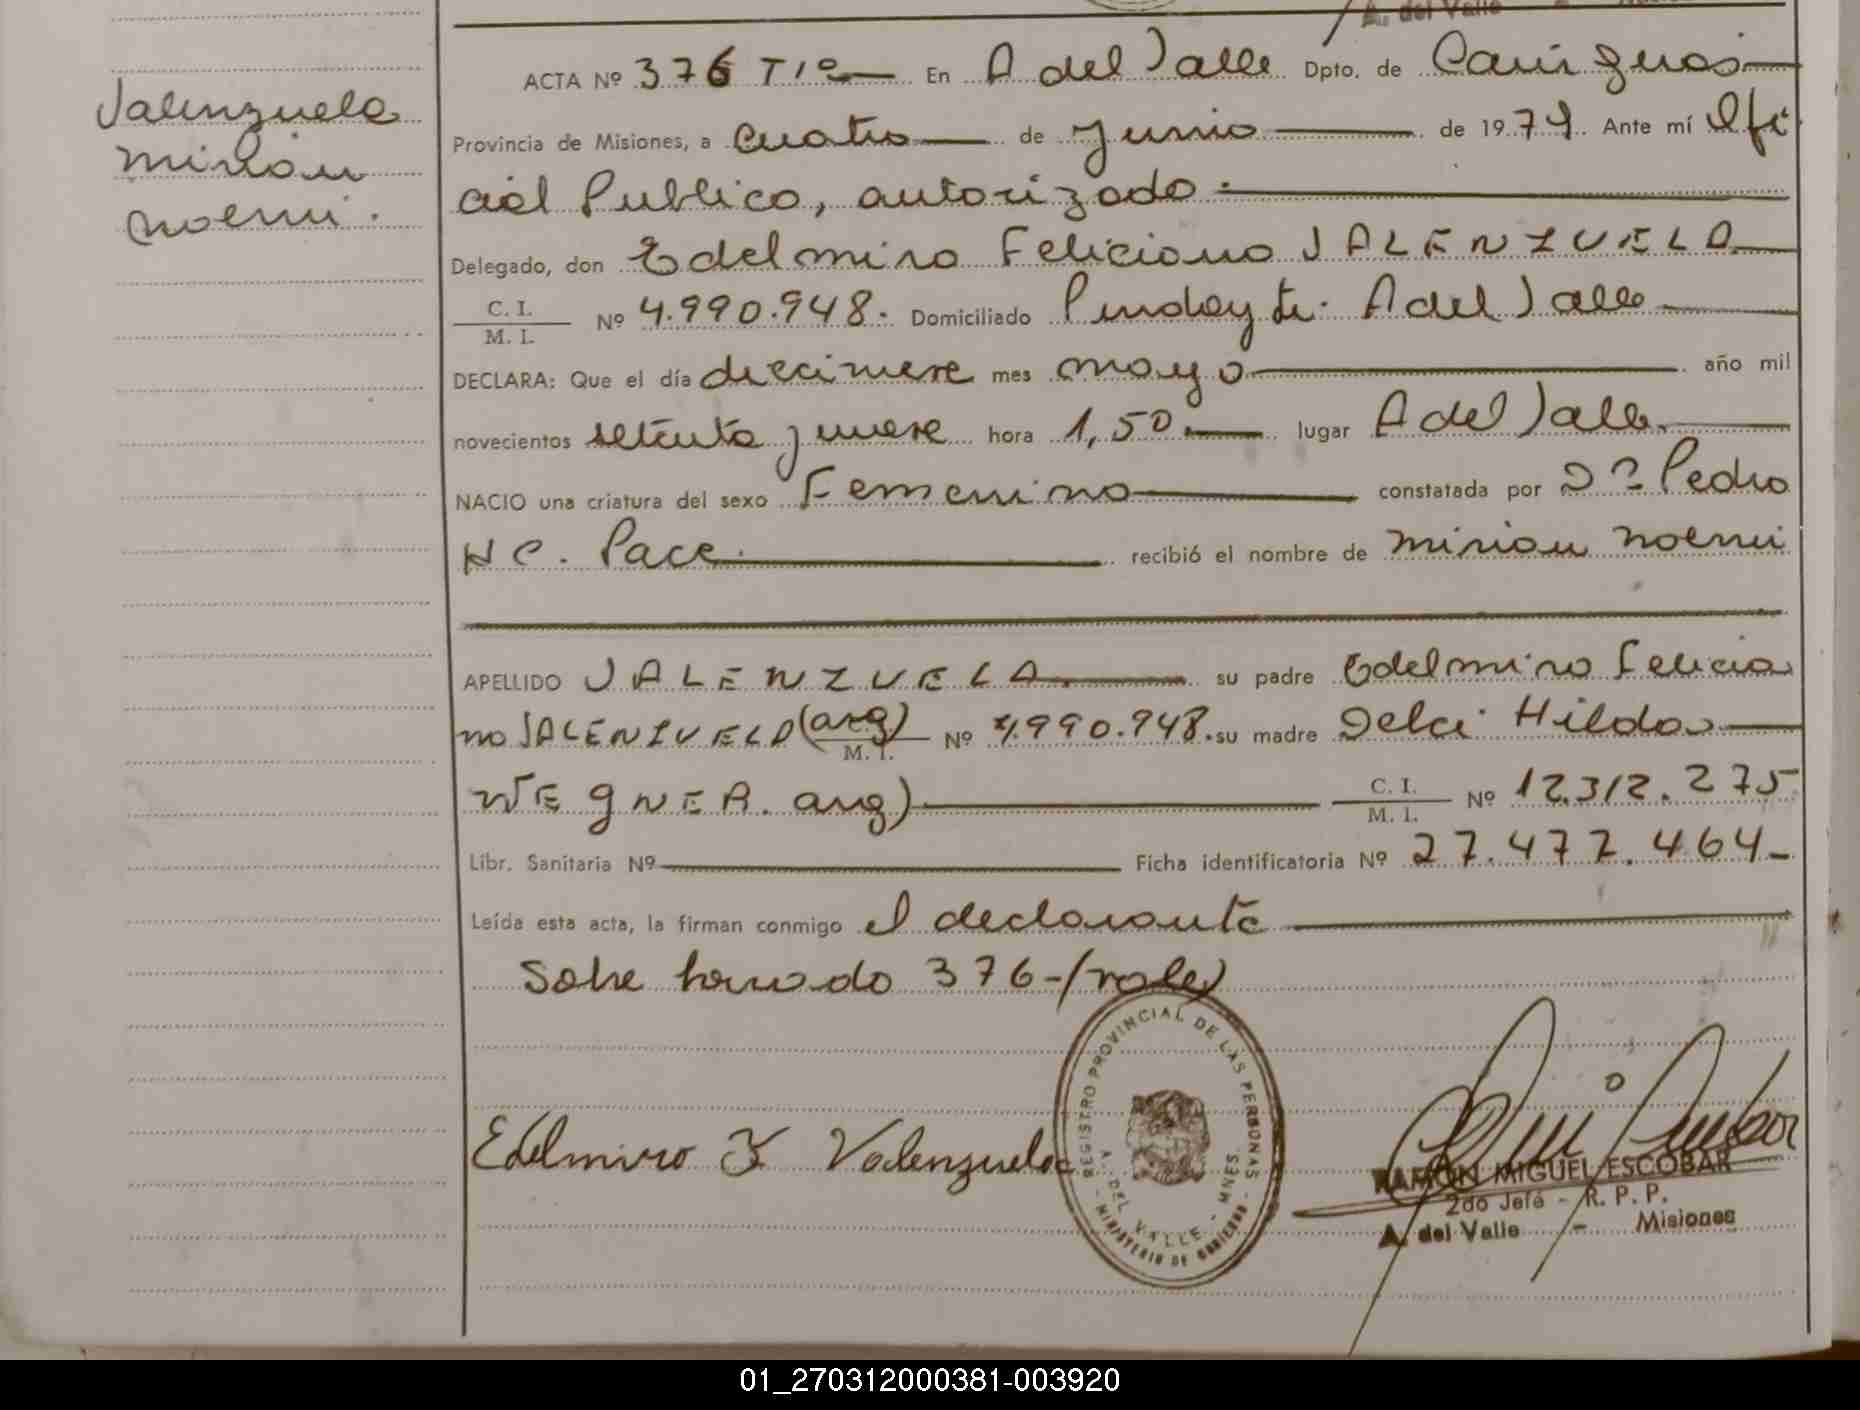 A. del Valle
Valenzuela
Mirian
Noemi.
ACTA Nº 376 Tº 1º En A del Valle Dpto. de Cainguas
Provincia de Misiones, a cuatro de Junio de 1979. Ante mí Ofi
cial Publico, autorizado.
Delegado, don Edelmiro Feliciano VALENZUELA
C. I.
M. I. Nº 4.990.948. Domiciliado Pindayti. A del Valle
DECLARA: Que el día diecinueve mes mayo año mil
novecientos setenta y nueve hora 1,50 lugar A del Valle
NACIO una criatura del sexo Femenino constatada por Dr Pedro
H C. Pace recibió el nombre de Mirian Noemi
APELLIDO VALENZUELA su padre Edelmiro Felicia
no VALENZUELA (arg) M. I. Nº 4.990.948. su madre Delci Hilda
WEGNER. arg) C. I.
M. I. Nº 12.312.275
Libr. Sanitaria Nº Ficha identificatoria Nº 27.477.464-
Leída esta acta, la firman conmigo el declarante
Sobre borrado 376-(vale)
Edelmiro F Valenzuela
REGISTRO PROVINCIAL DE LAS PERSONAS
A. DEL VALLE - MNES.
- MINISTERIO DE GOBIERNO -
RAMON MIGUEL ESCOBAR
2do Jefe - R. P. P.
A. del Valle - Misiones
01_270312000381-003920